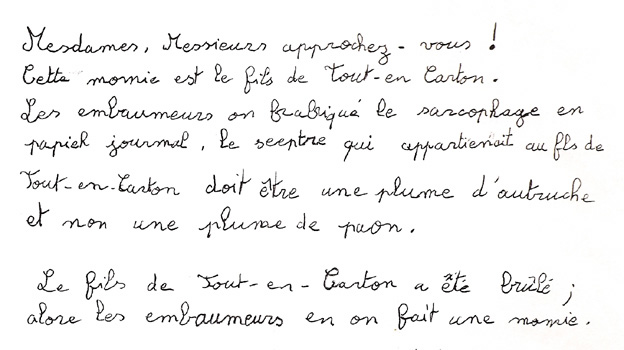 Mesdames, Messieurs approchez-vous !
Cette momie est le fils de Tout-en Carton.
Les embaumeurs on frabriqué le sarcophage en
papier journal, le sceptre qui appartienait au fils de
Tout-en-Carton doit être une plume d'autruche
et non une plume de paon.
Le fils de Tout-en-Carton a été brûlé ;
alore les embaumeurs en on fait une momie.